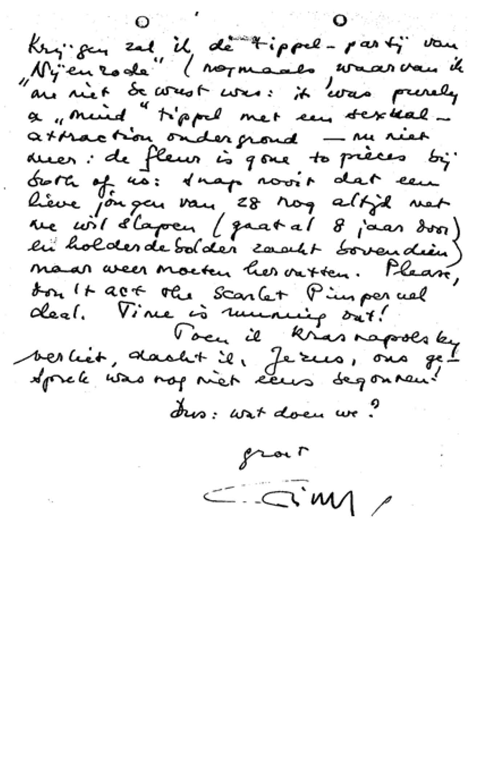 Krijgen zal ik de tippel-partij van
„Nijenrode" (nogmaals, waarvan ik
me niet bewust was: it was purely
a „mind" tippel met een sexual-
attraction ondergrond — nu niet
meer: de fleur is gone to pièces bij
both of us: snap nooit dat een
lieve jongen van 28 nog altijd met
me wil slapen (gaat al 8 jaar door)
en holderdebolder zaakt bovendien)
maar weer moeten hervatten. Please,
don't act the Scarlet Pimpernel
deal. Time is running out!
Toen ik Krasnapolsky
verliet, dacht ik, Jezus, ons ge-
sprek was nog niet eens begonnen!
Dus: wat doen we?
groet